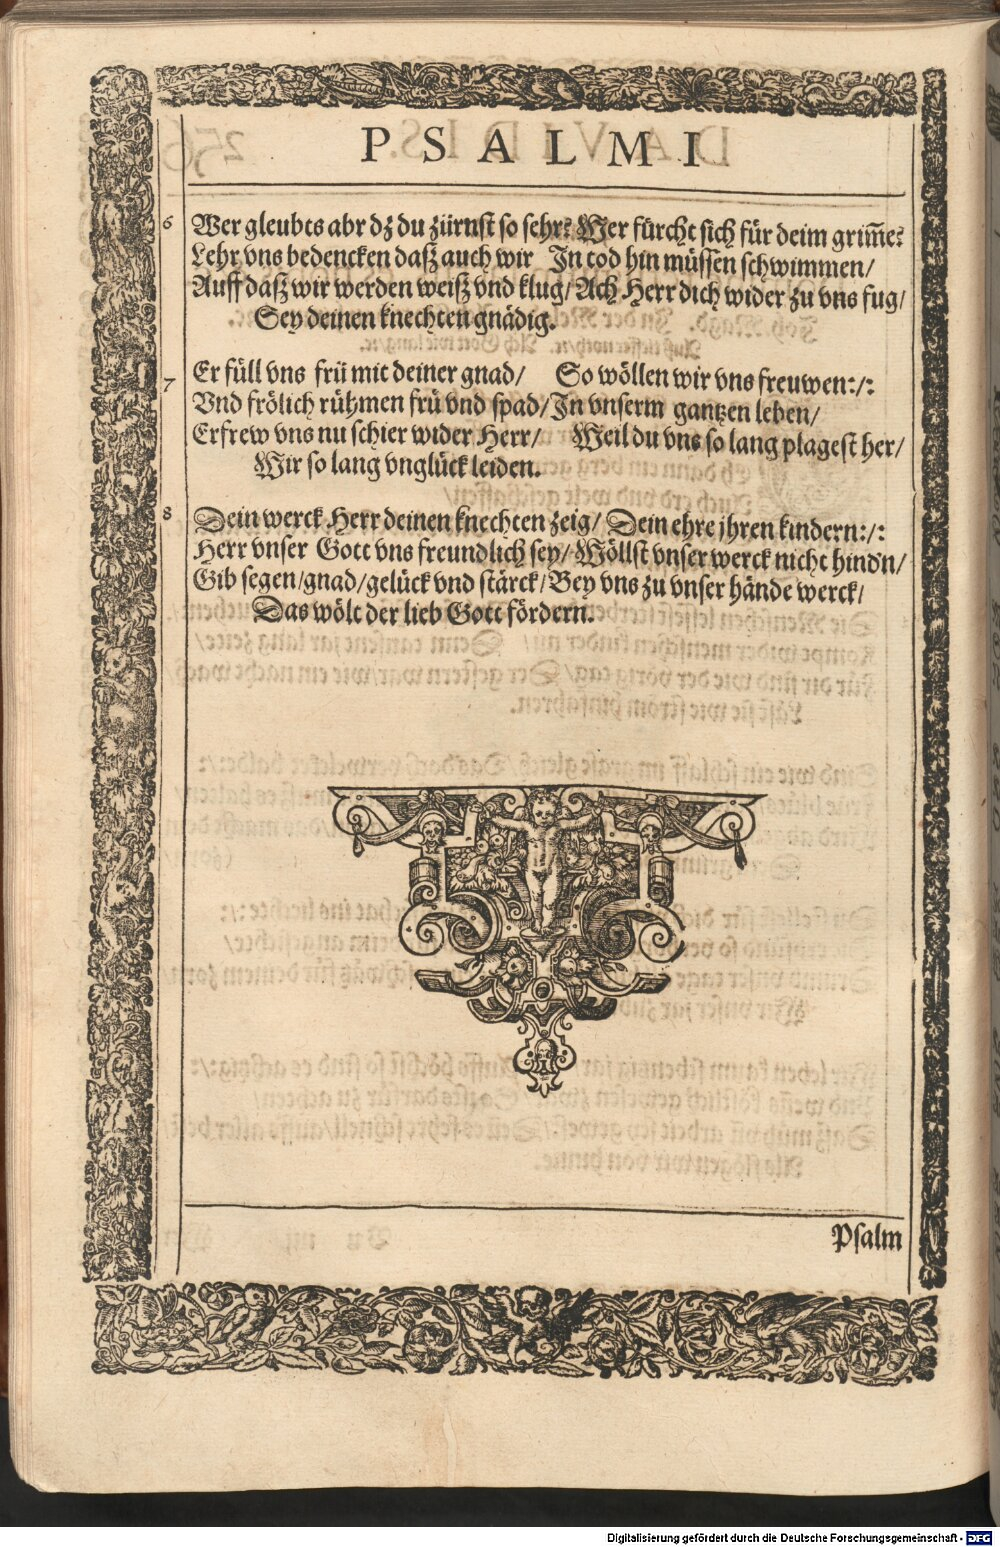 PSALMI
6 Wer gleubts abr dz du zürnst so sehr? Wer fürcht sich für deim grim̃e?
Lehr vns bedencken daß auch wir In tod hin müssen schwimmen/
Auff daß wir werden weiß vnd klug/ Ach Herr dich wider zu vns fug/
Sey deinen knechten gnädig.
7 Er füll vns frü mit deiner gnad/ So wöllen wir vns freuwen:/:
Vnd frölich rühmen frü vnd spad/ In vnserm gantzen leben/
Erfrew vns nu schier wider Herr/ Weil du vns so lang plagest her/
Wir so lang vnglück leiden.
8 Dein werck Herr deinen knechten zeig/ Dein ehre jhren kindern:/:
Herr vnser Gott vns freundlich sey/ Wöllst vnser werck nicht hind'n/
Gib segen/ gnad/ gelück vnd stärck/ Bey vns zu vnser hände werck/
Das wölt der lieb Gott fördern.
Psalm
Digitalisierung gefördert durch die Deutsche Forschungsgemeinschaft - DFG